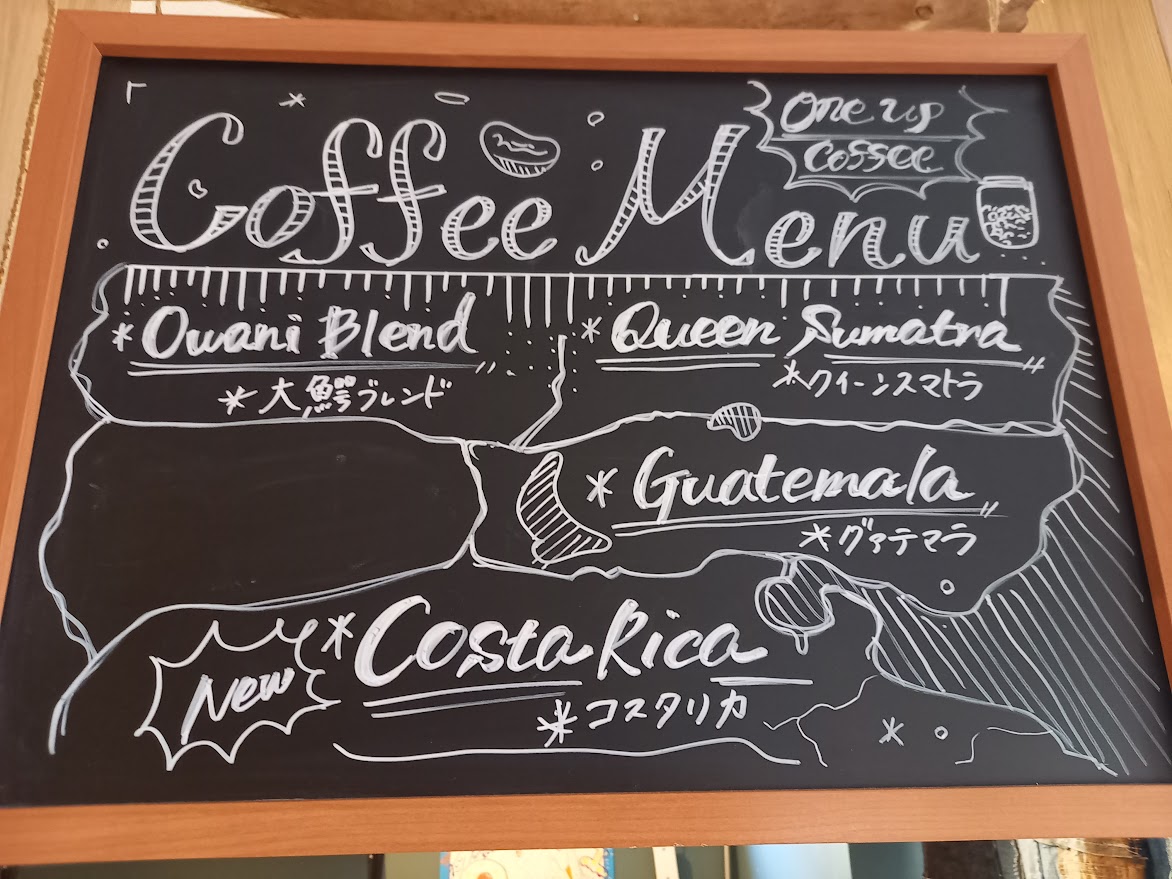 Coffee Menu
One up
coffee
* Owani Blend
* 大鰐ブレンド
* Queen Sumatra
* クイーンスマトラ
* Guatemala
* グァテマラ
New
* Costa Rica
* コスタリカ